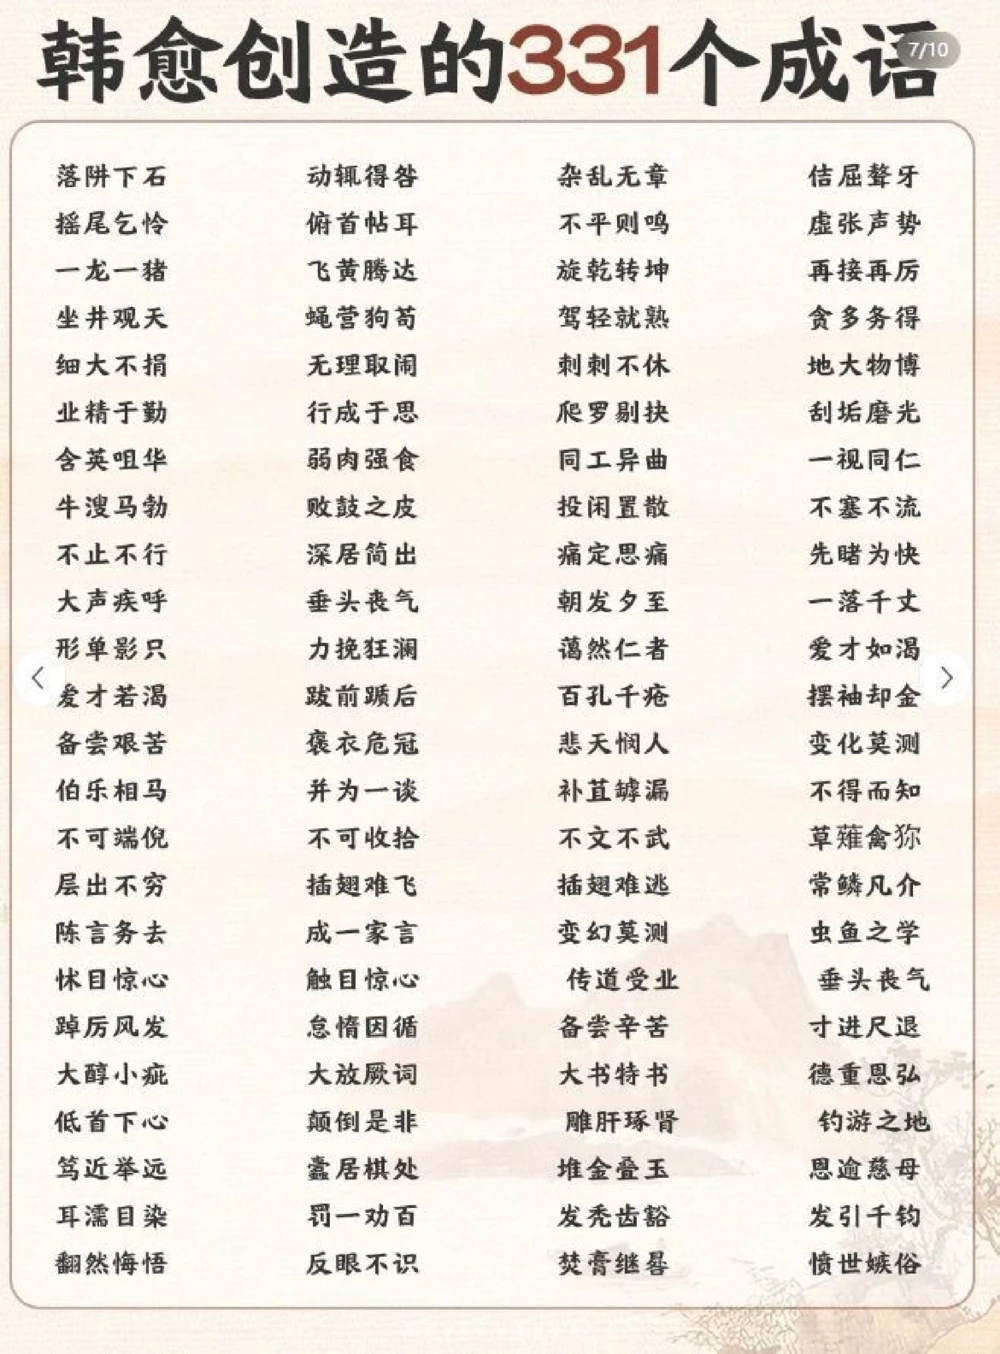 韩愈创造的331个成语
7/10
落阱下石 动辄得咎 杂乱无章 佶屈聱牙
摇尾乞怜 俯首帖耳 不平则鸣 虚张声势
一龙一猪 飞黄腾达 旋乾转坤 再接再厉
坐井观天 蝇营狗苟 驾轻就熟 贪多务得
细大不捐 无理取闹 刺刺不休 地大物博
业精于勤 行成于思 爬罗剔抉 刮垢磨光
含英咀华 弱肉强食 同工异曲 一视同仁
牛溲马勃 败鼓之皮 投闲置散 不塞不流
不止不行 深居简出 痛定思痛 先睹为快
大声疾呼 垂头丧气 朝发夕至 一落千丈
形单影只 力挽狂澜 蔼然仁者 爱才如渴
爱才若渴 跋前踬后 百孔千疮 摆袖却金
备尝艰苦 褒衣危冠 悲天悯人 变化莫测
伯乐相马 并为一谈 补苴罅漏 不得而知
不可端倪 不可收拾 不文不武 草薙禽狝
层出不穷 插翅难飞 插翅难逃 常鳞凡介
陈言务去 成一家言 变幻莫测 虫鱼之学
怵目惊心 触目惊心 传道受业 垂头丧气
踔厉风发 怠惰因循 备尝辛苦 寸进尺退
大醇小疵 大放厥词 大书特书 德重恩弘
低首下心 颠倒是非 雕肝琢肾 钓游之地
笃近举远 蠹居棋处 堆金叠玉 恩逾慈母
耳濡目染 罚一劝百 发秃齿豁 发引千钧
翻然悔悟 反眼不识 焚膏继晷 愤世嫉俗